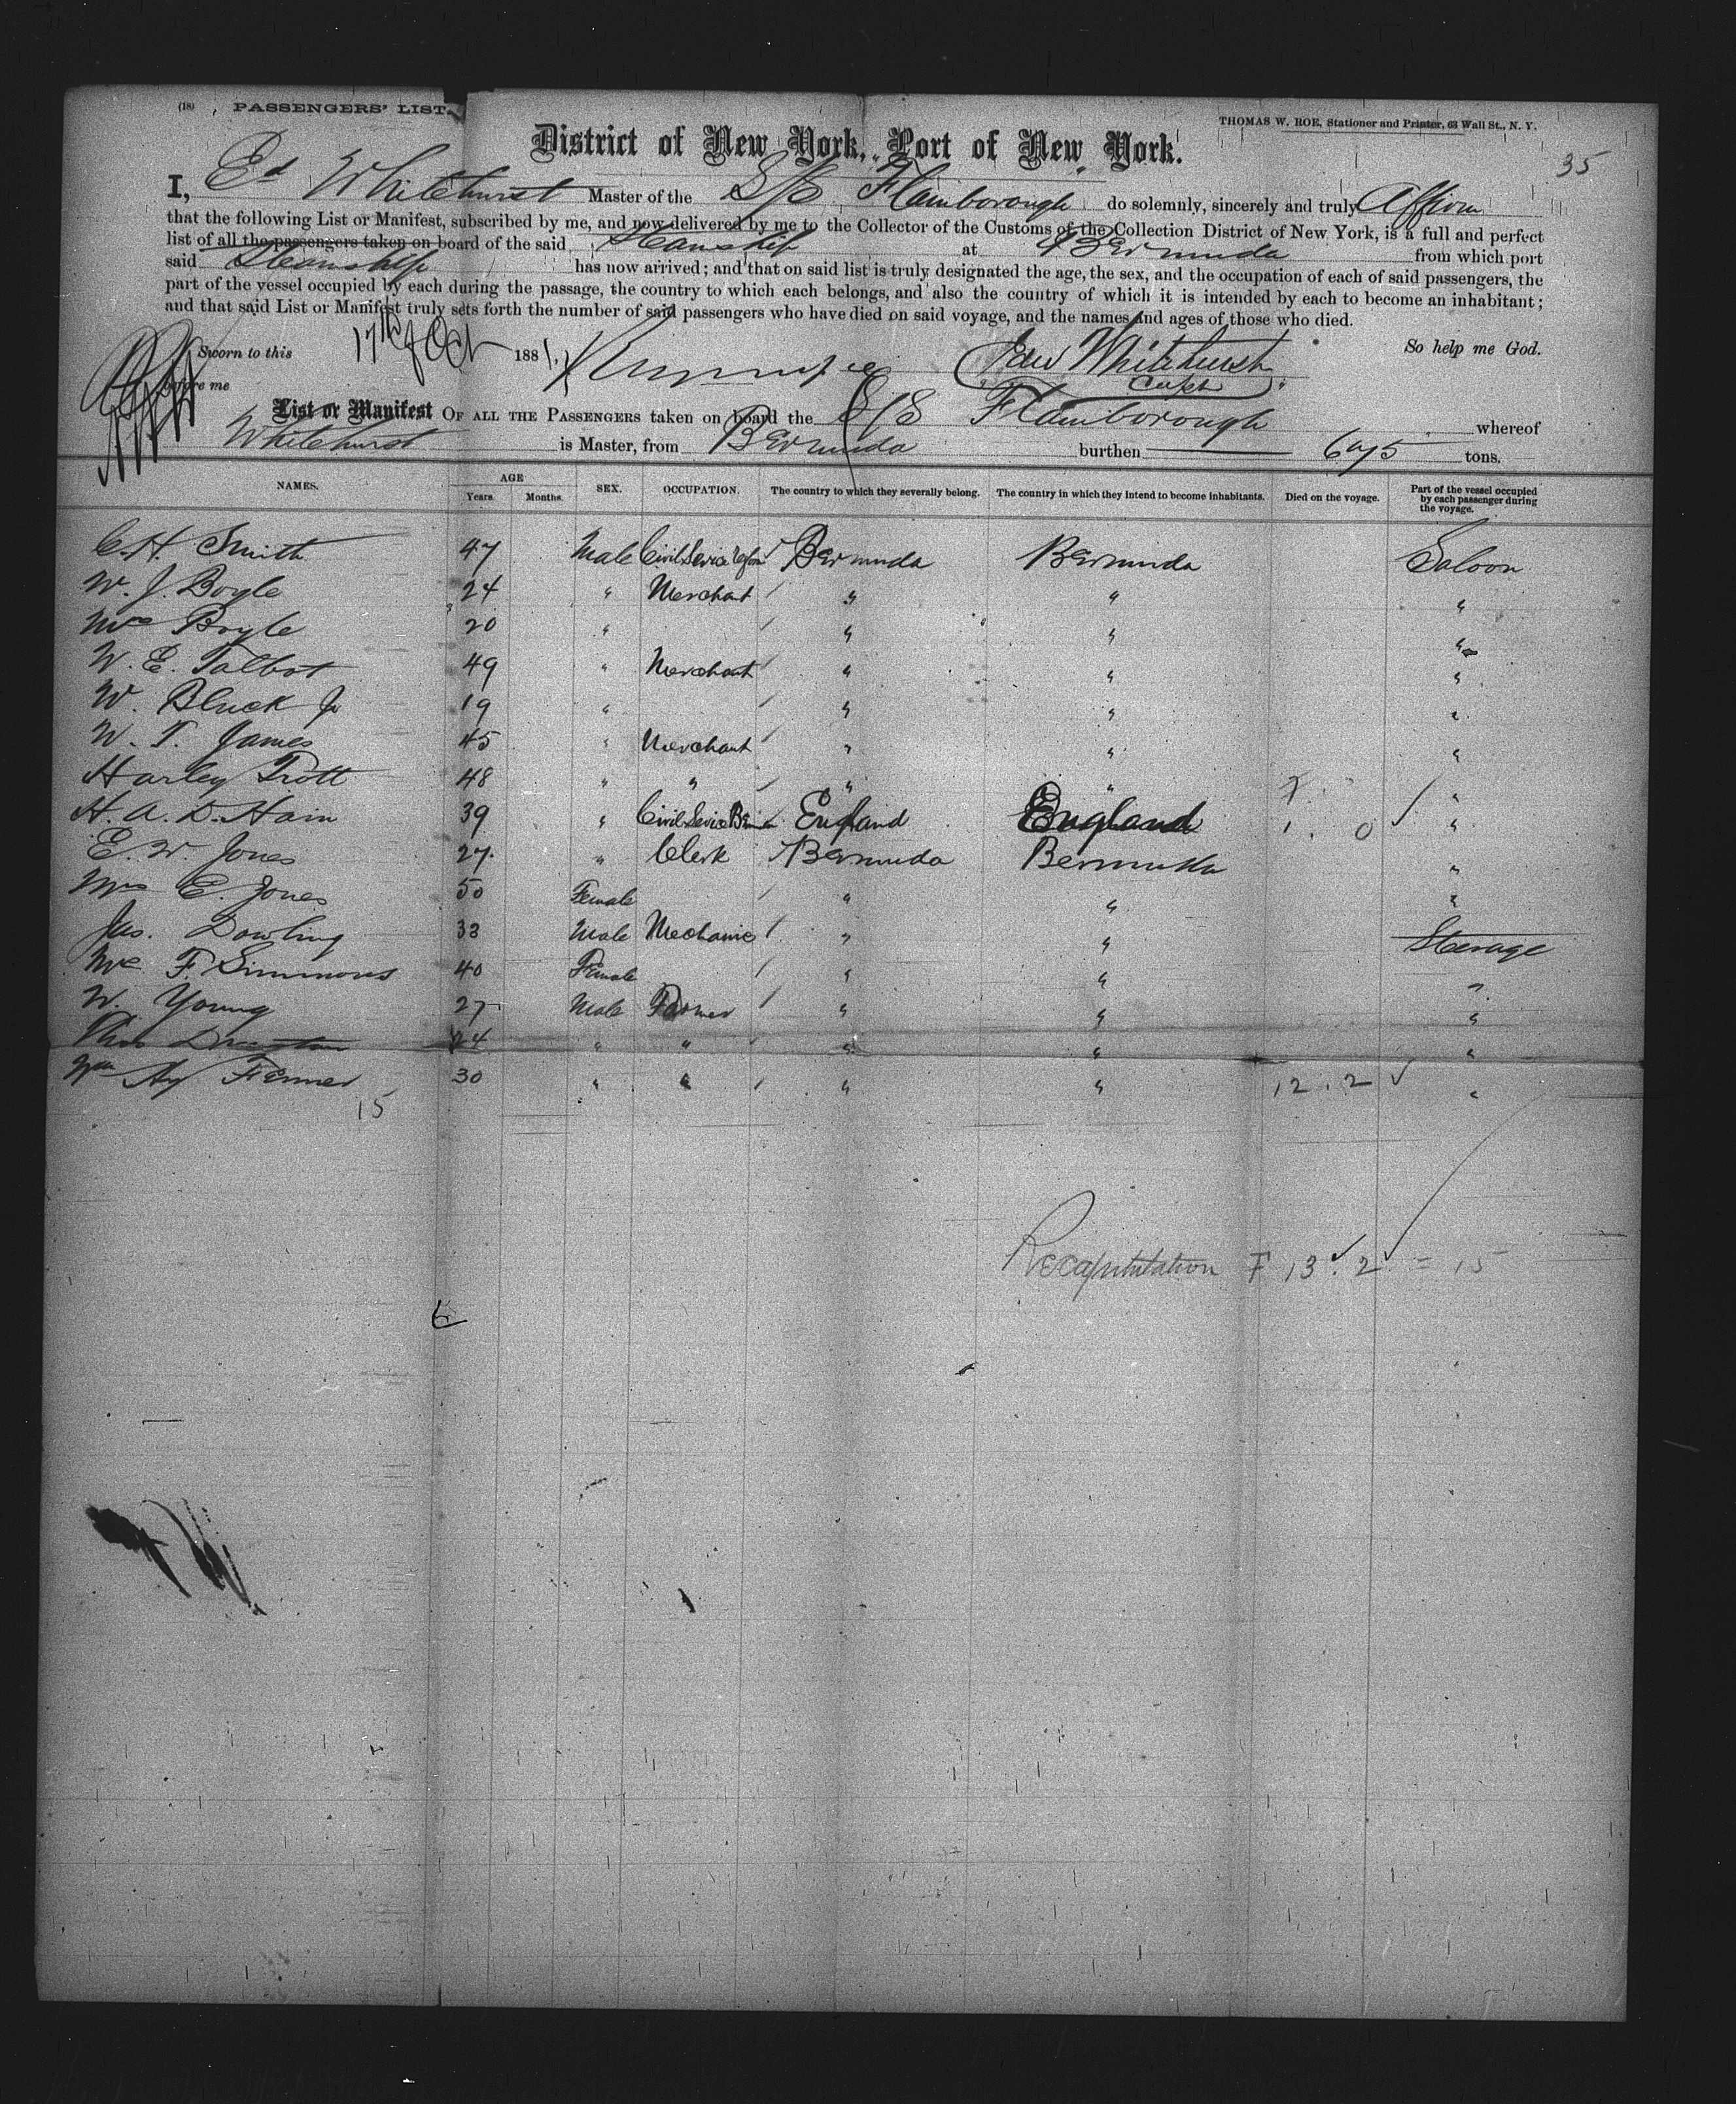 (18) PASSENGERS' LIST.
THOMAS W. ROE, Stationer and Printer, 63 Wall St., N. Y.
District of New York, Port of New York.
35
I, Ed Whitehurst Master of the S/S Flamborough do solemnly, sincerely and truly Affirm
that the following List or Manifest, subscribed by me, and now delivered by me to the Collector of the Customs of the Collection District of New York, is a full and perfect
list of all the passengers taken on board of the said Steamship at Bermuda from which port
said Steamship has now arrived; and that on said list is truly designated the age, the sex, and the occupation of each of said passengers, the
part of the vessel occupied by each during the passage, the country to which each belongs, and also the country of which it is intended by each to become an inhabitant;
and that said List or Manifest truly sets forth the number of said passengers who have died on said voyage, and the names and ages of those who died.
Sworn to this 17th of Oct 1881. Edw Whitehurst So help me God.
before me Capt
List or Manifest OF ALL THE PASSENGERS taken on board the S/S Flamborough whereof
Whitehurst is Master, from Bermuda burthen tons.
NAMES. AGE Years. Months. SEX. OCCUPATION. The country to which they severally belong. The country in which they intend to become inhabitants. Died on the voyage. Part of the vessel occupied by each passenger during the voyage.
C. H. Smith 47 Male Civil Service Bermuda Bermuda Saloon
W. J. Boyle 24 " Merchant " " "
Mrs Boyle 20 " " " "
W. E. Talbot 49 " Merchant " " "
W. Bluck Jr 19 " " " "
W. T. James 45 " Merchant " " "
Harley Trott 48 " " " " "
H. A. D. Hain 39 " Civil Service England England 1. 0 "
E. W. Jones 27 " Clerk Bermuda Bermuda "
Mrs E. Jones 50 Female " " "
Jas. Dowling 33 Male Mechanic " " Steerage
Mrs F. Simmons 40 Female " " "
W. Young 27 Male Farmer " " "
24 " " " " "
Fenner 30 " " " " 12. 2 "
15
Recapitulation F 13. 2 = 15